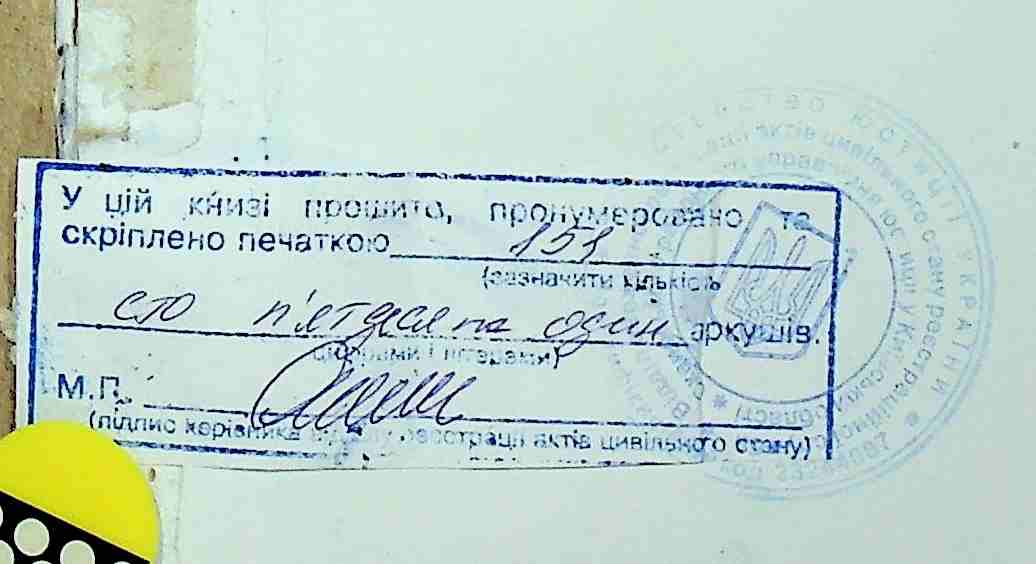 У цій книзі прошито, пронумеровано та
скріплено печаткою 151
(зазначити кількість
сто п'ятдесят один аркушів.
цифрами і літерами)
М.П.
(підпис керівника відділу реєстрації актів цивільного стану)
юстиції України
актів цивільного стану реєстраційної
управління юс
области
код